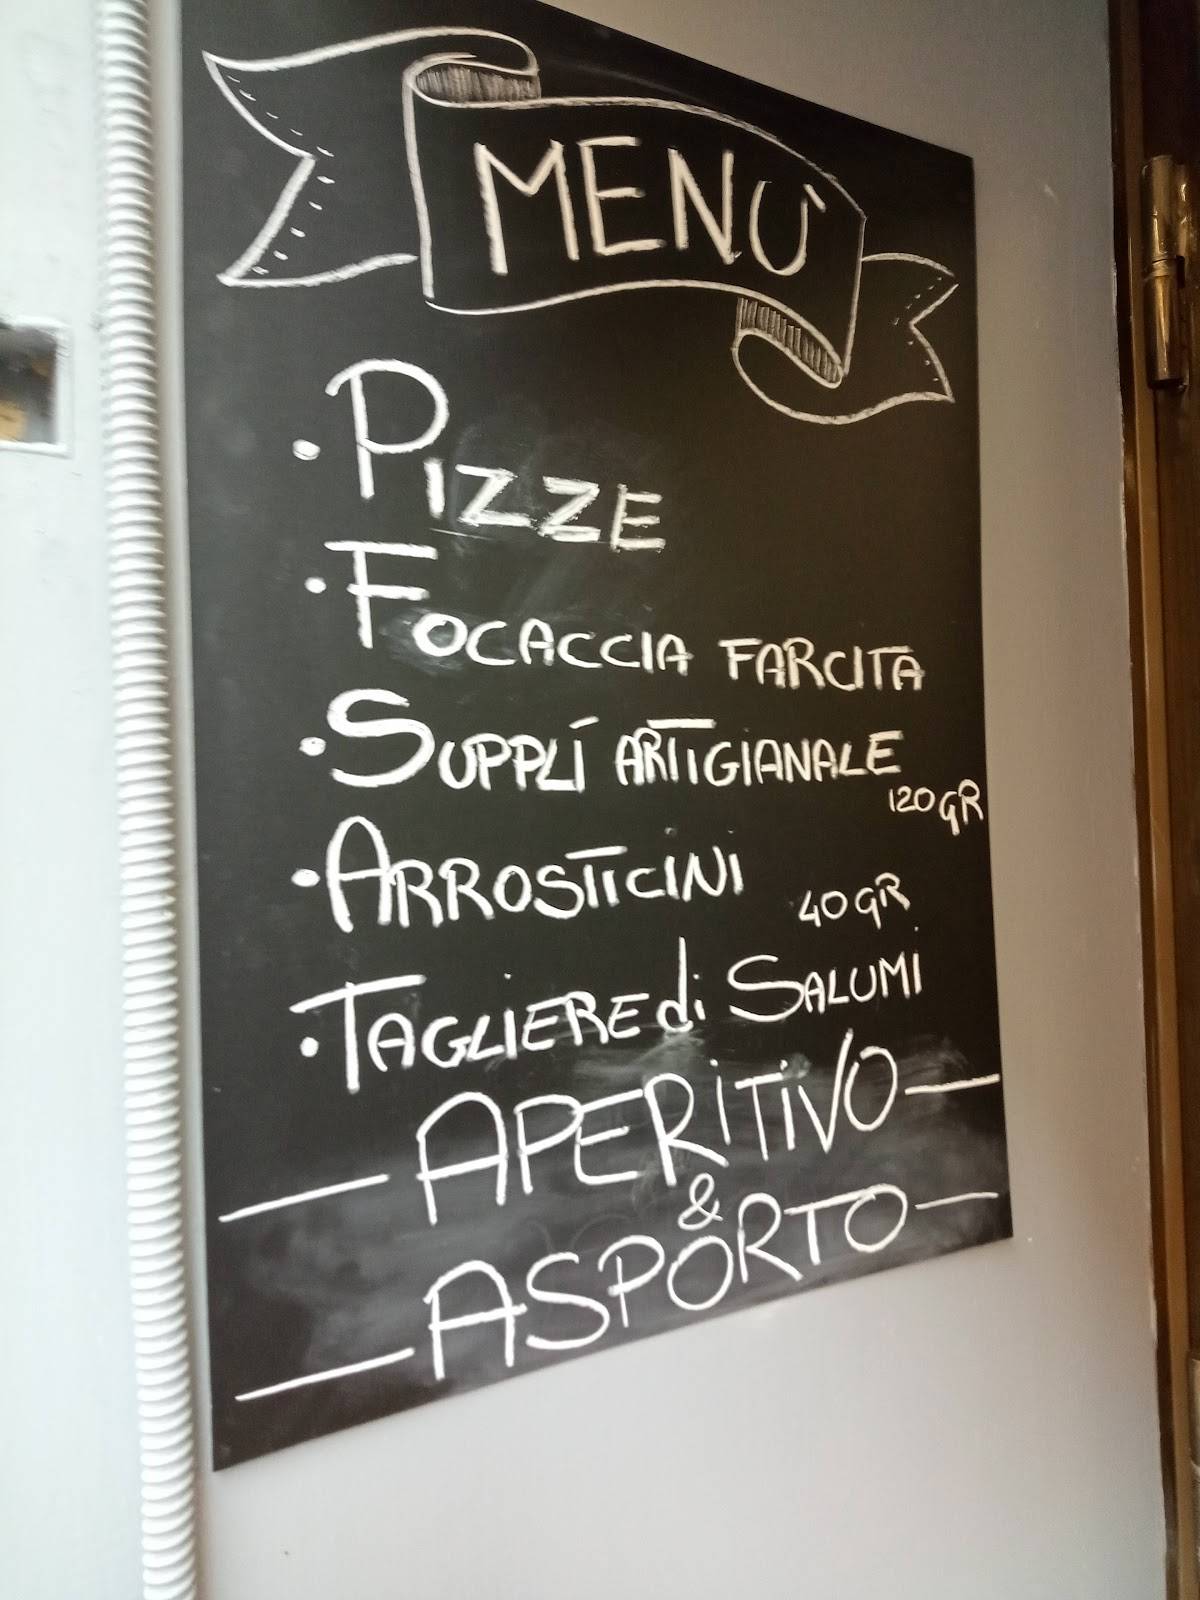 MENÙ
· PIZZE
· FOCACCIA FARCITA
· SUPPLÍ ARTIGIANALE
120 GR
· ARROSTICINI
40 GR
· TAGLIERE di SALUMI
— APERITIVO —
&
— ASPORTO —